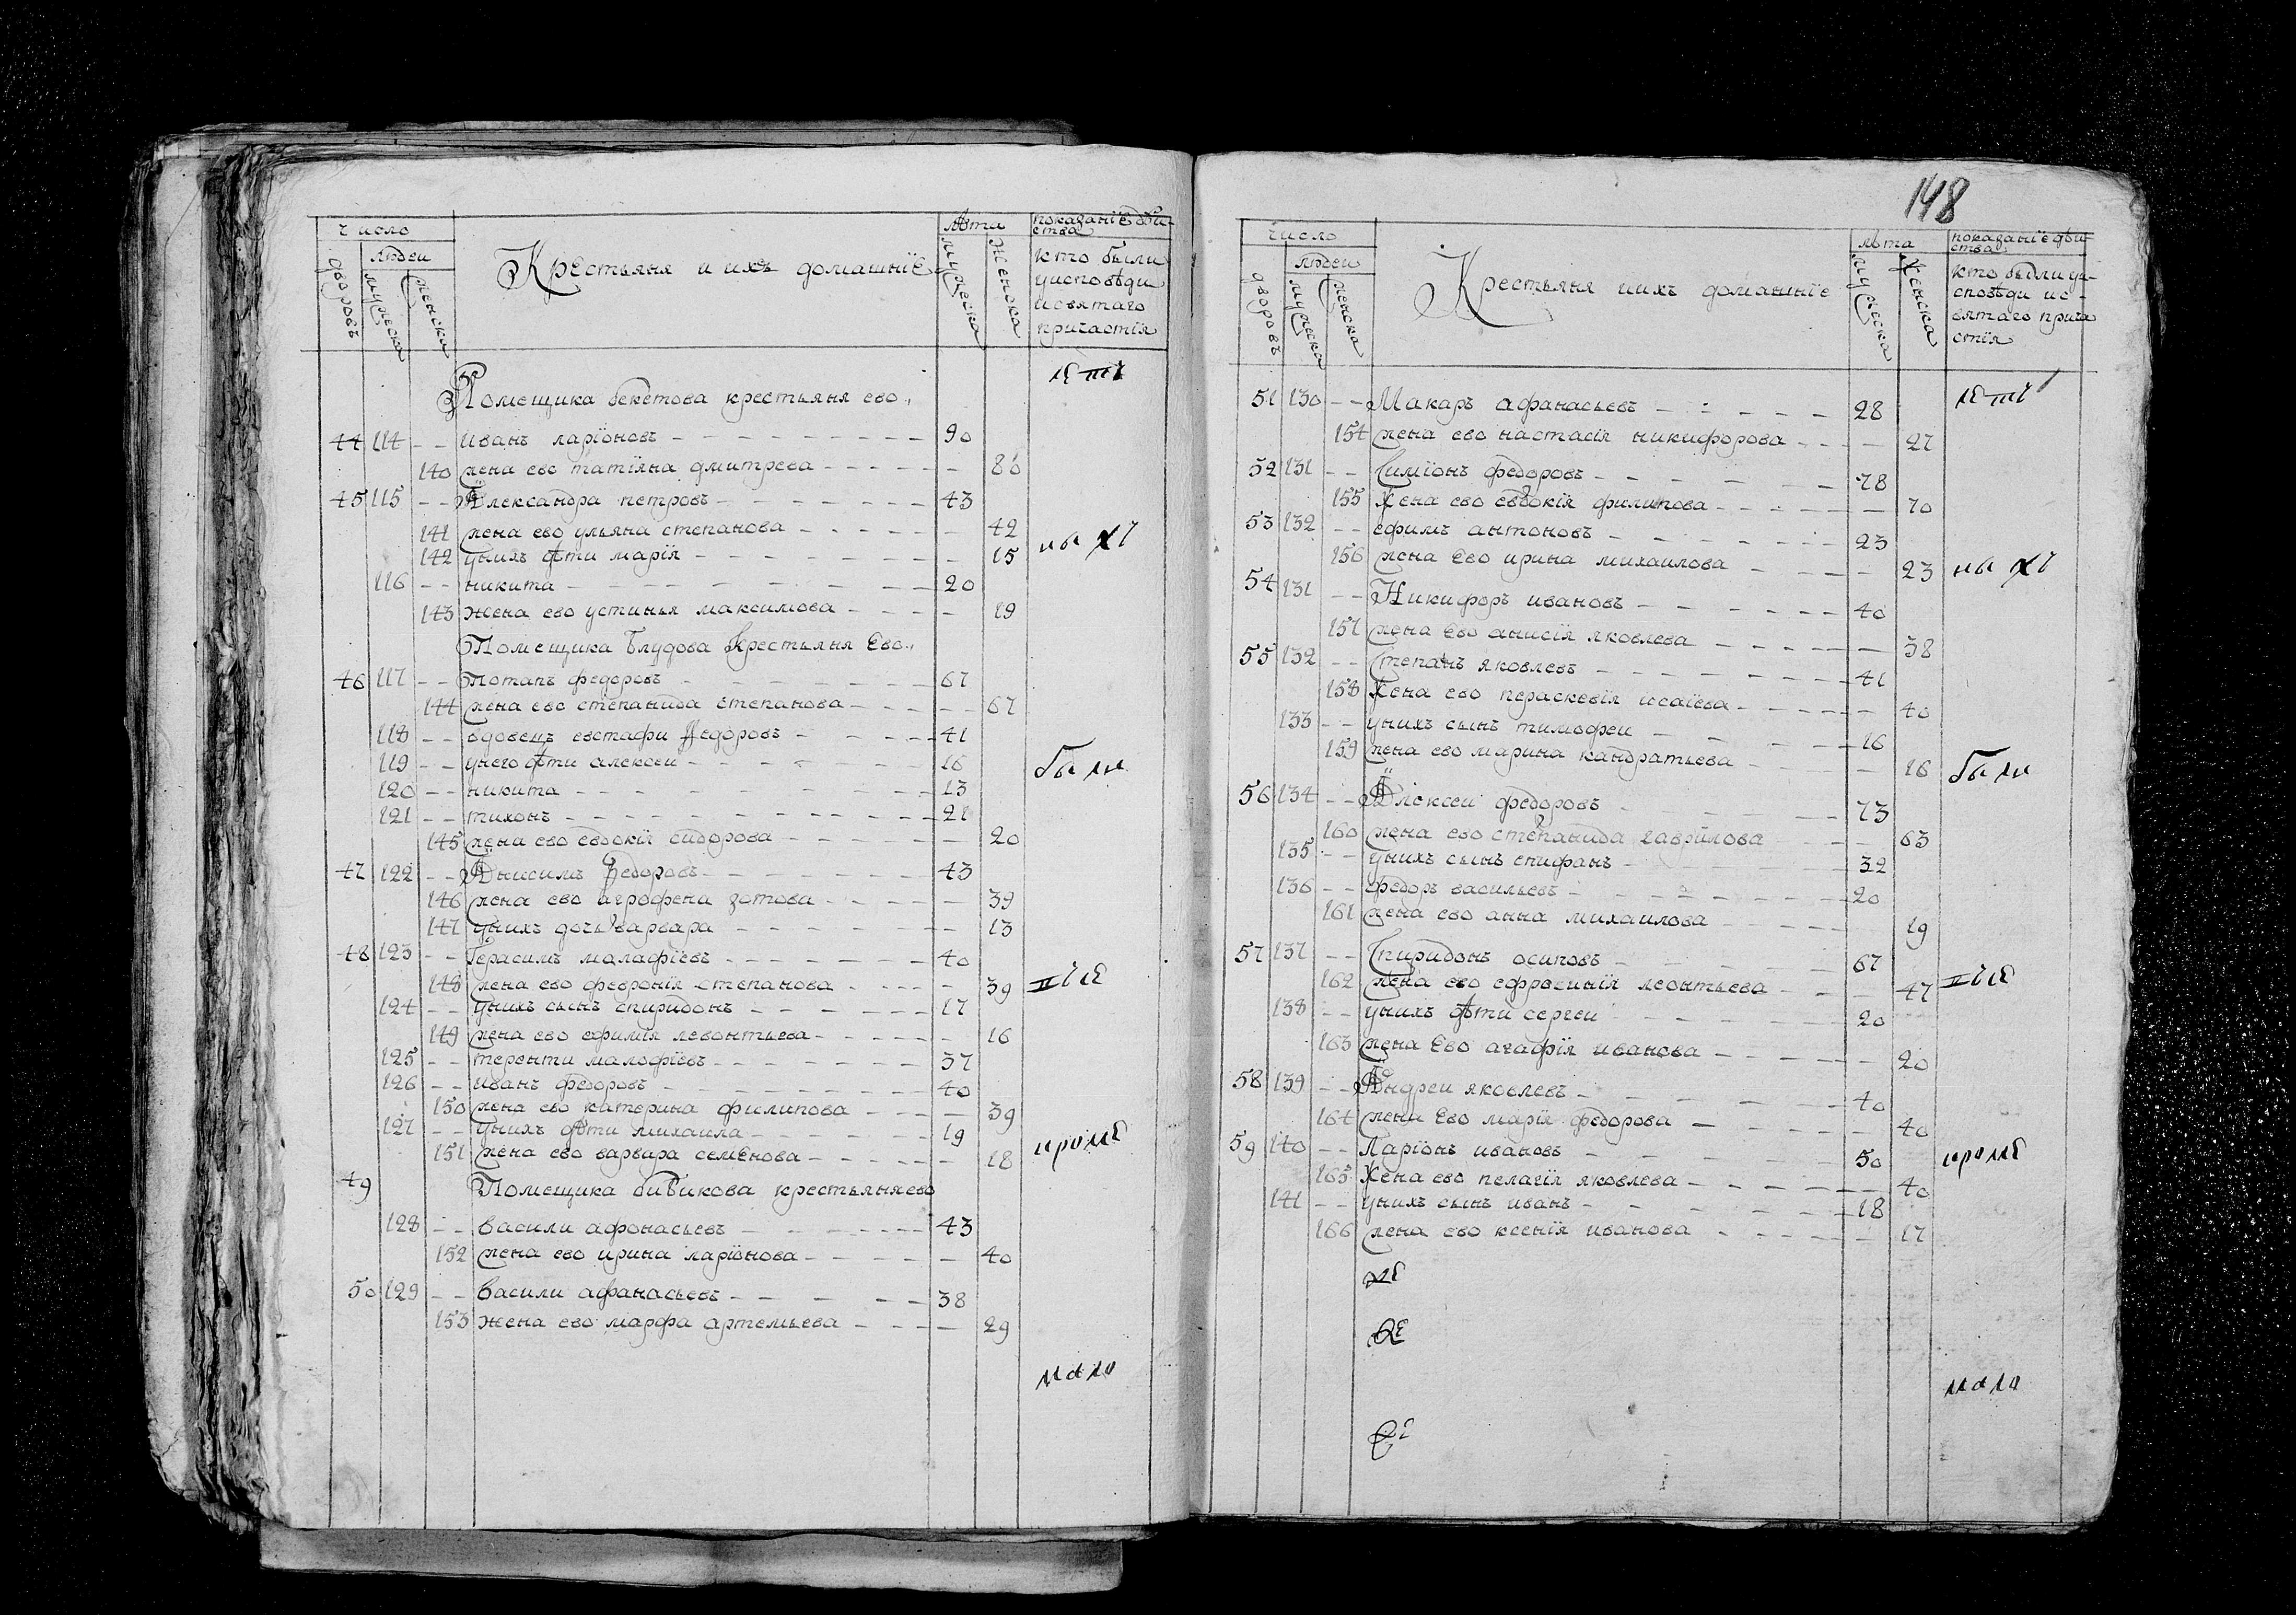 число
людеи
дворовъ
мужеска
женска
Крестьяня и ихъ домашнїе
лѣта
мужеска
женска
показанїе дѣи-
ства
кто были
уисповѣди
исвятаго
причастїя
Помещика бекетова крестьяня ево.,
44 114 -- иванъ ларїоновъ 90
140 жена ево татїяна дмитрева 80
45 115 -- Александра петровъ 43
141 жена ево ульяна степанова 42
142 унихъ дѣти марїя 15
116 -- никита 20
143 жена ево устинья максимова 19
Помещика Блудова Крестьяня Ево.,
46 117 -- Потапъ федоровъ 67
144 жена ево степанида степанова 67
118 -- вдовецъ евстафи Федоровъ 41
119 -- унего дѣти алексеи 16
120 -- никита 13
121 -- тихонъ 21
145 жена ево евдокїя сидорова 20
47 122 -- Анисимъ Федоровъ 43
146 жена ево агрофена зотова 39
147 унихъ дочь варвара 13
48 123 -- Герасимъ малафїевъ 40
148 жена ево февронїя степанова 39
124 -- унихъ сынъ спиридонъ 17
149 жена ево ефимїя левонтьева 16
125 -- теренти малофїевъ 37
126 -- иванъ федоровъ 40
150 жена ево катерина филипова 39
127 -- унихъ дѣти михаила 19
151 жена ево варвара семенова 18
49 Помещика бибикова крестьяня ево
128 -- васили афонасьевъ 43
152 жена ево ирина ларїонова 40
50 129 -- васили афанасьевъ 38
153 жена ево марфа артемьева 29
были
кроме
мало
148
число
людеи
дворовъ
мужеска
женска
Крестьяня иихъ домашнїе
лѣта
мужеска
женска
показанїе дѣи-
ства
кто были уи-
споѣди ис-
вятаго прича
стїя
51 130 -- Макаръ афанасьевъ 28
154 жена ево настасїя никифорова 27
52 131 -- Симїонъ федоровъ 78
155 Жена ево евдокїя филипова 70
53 132 -- ефимъ антоновъ 23
156 жена Ево ирина михаилова 23
54 131 -- Никифоръ ивановъ 40
157 жена Ево анисїя яковлева 38
55 132 -- Степанъ яковлевъ 41
158 Жена ево пераскевїя исаїева 40
133 -- унихъ сынъ тимофеи 16
159 жена ево марина кандратьева 16
56 134 -- Алексеи федоровъ 73
160 жена ево степанида гаврилова 63
135 -- унихъ сынъ епифанъ 32
136 -- федоръ васильевъ 20
161 жена ево анна михаилова 19
57 137 -- Спиридонъ осиповъ 67
162 жена ево ефросинїя леонтьева 47
138 -- унихъ дѣти сергеи 20
163 жена Ево агафїя иванова 20
58 139 -- Андреи яковлевъ 40
164 жена Ево марїя федорова 40
59 140 -- Ларїонъ ивановъ 50
165 Жена ево пелагїя яковлева 40
141 -- унихъ сынъ иванъ 18
166 жена ево ксенїя иванова 17
были
кроме
мало